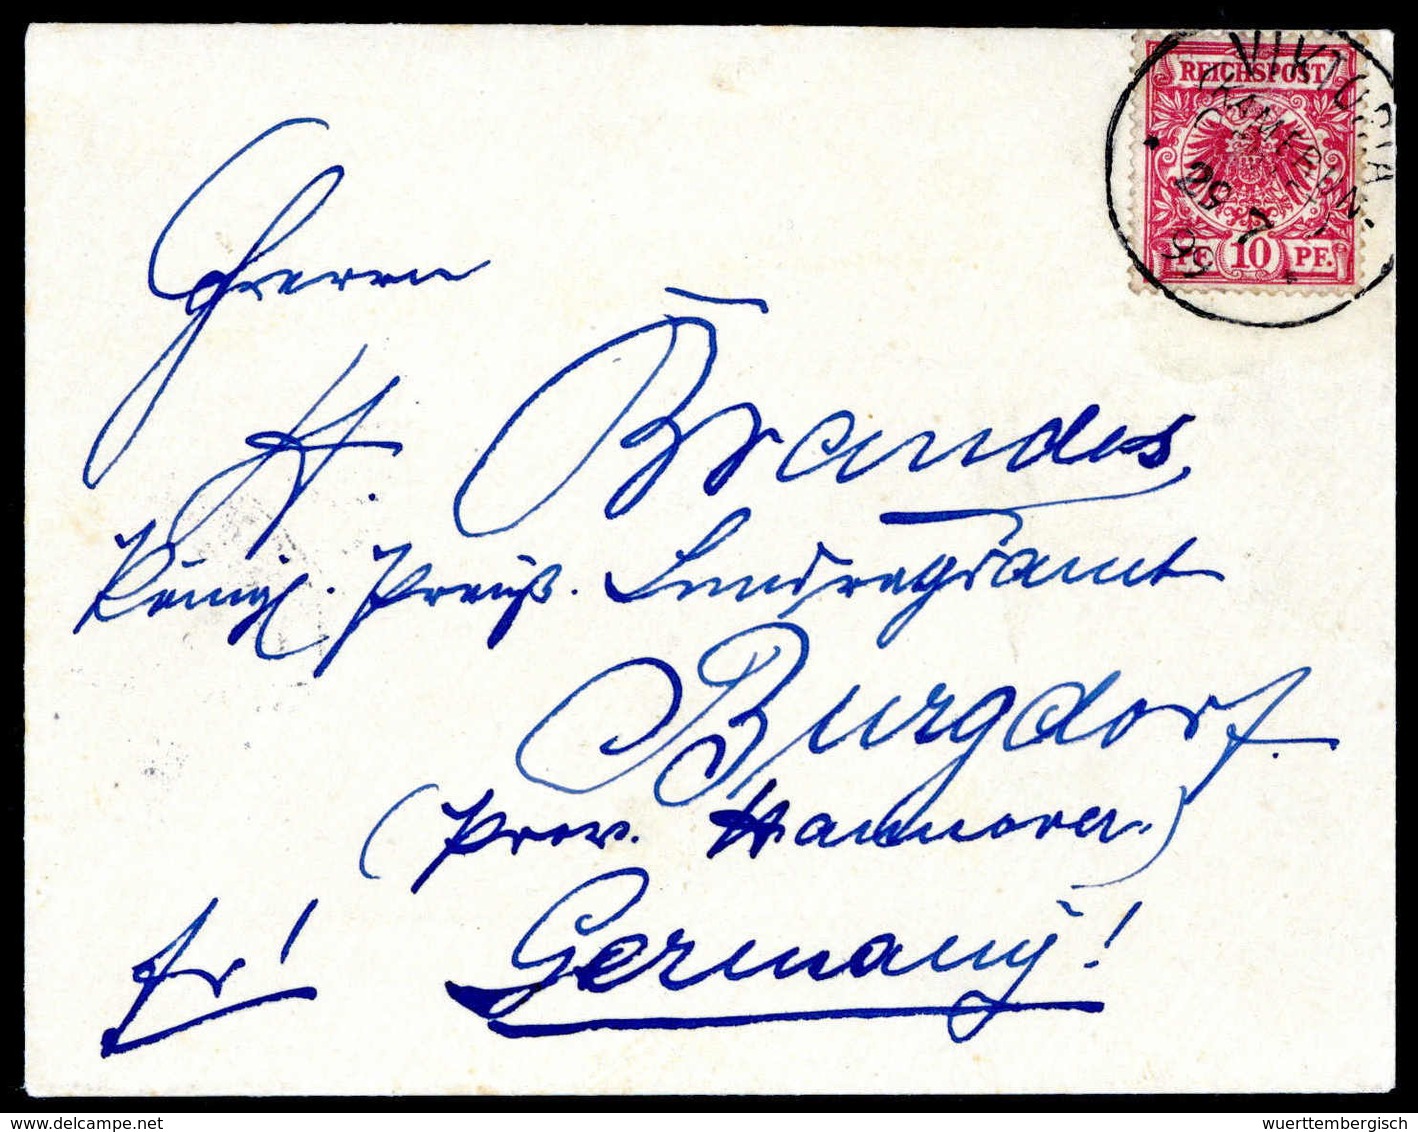 REICHSPOST
PF. 10 PF.
VIKTORIA
(KAMERUN)
29
7
99
Herrn
H. Brandes,
Königl. Preuß. Landratsamt
Burgdorf.
(Prov. Hannover)
fr!
Germany!
wuerttembergisch